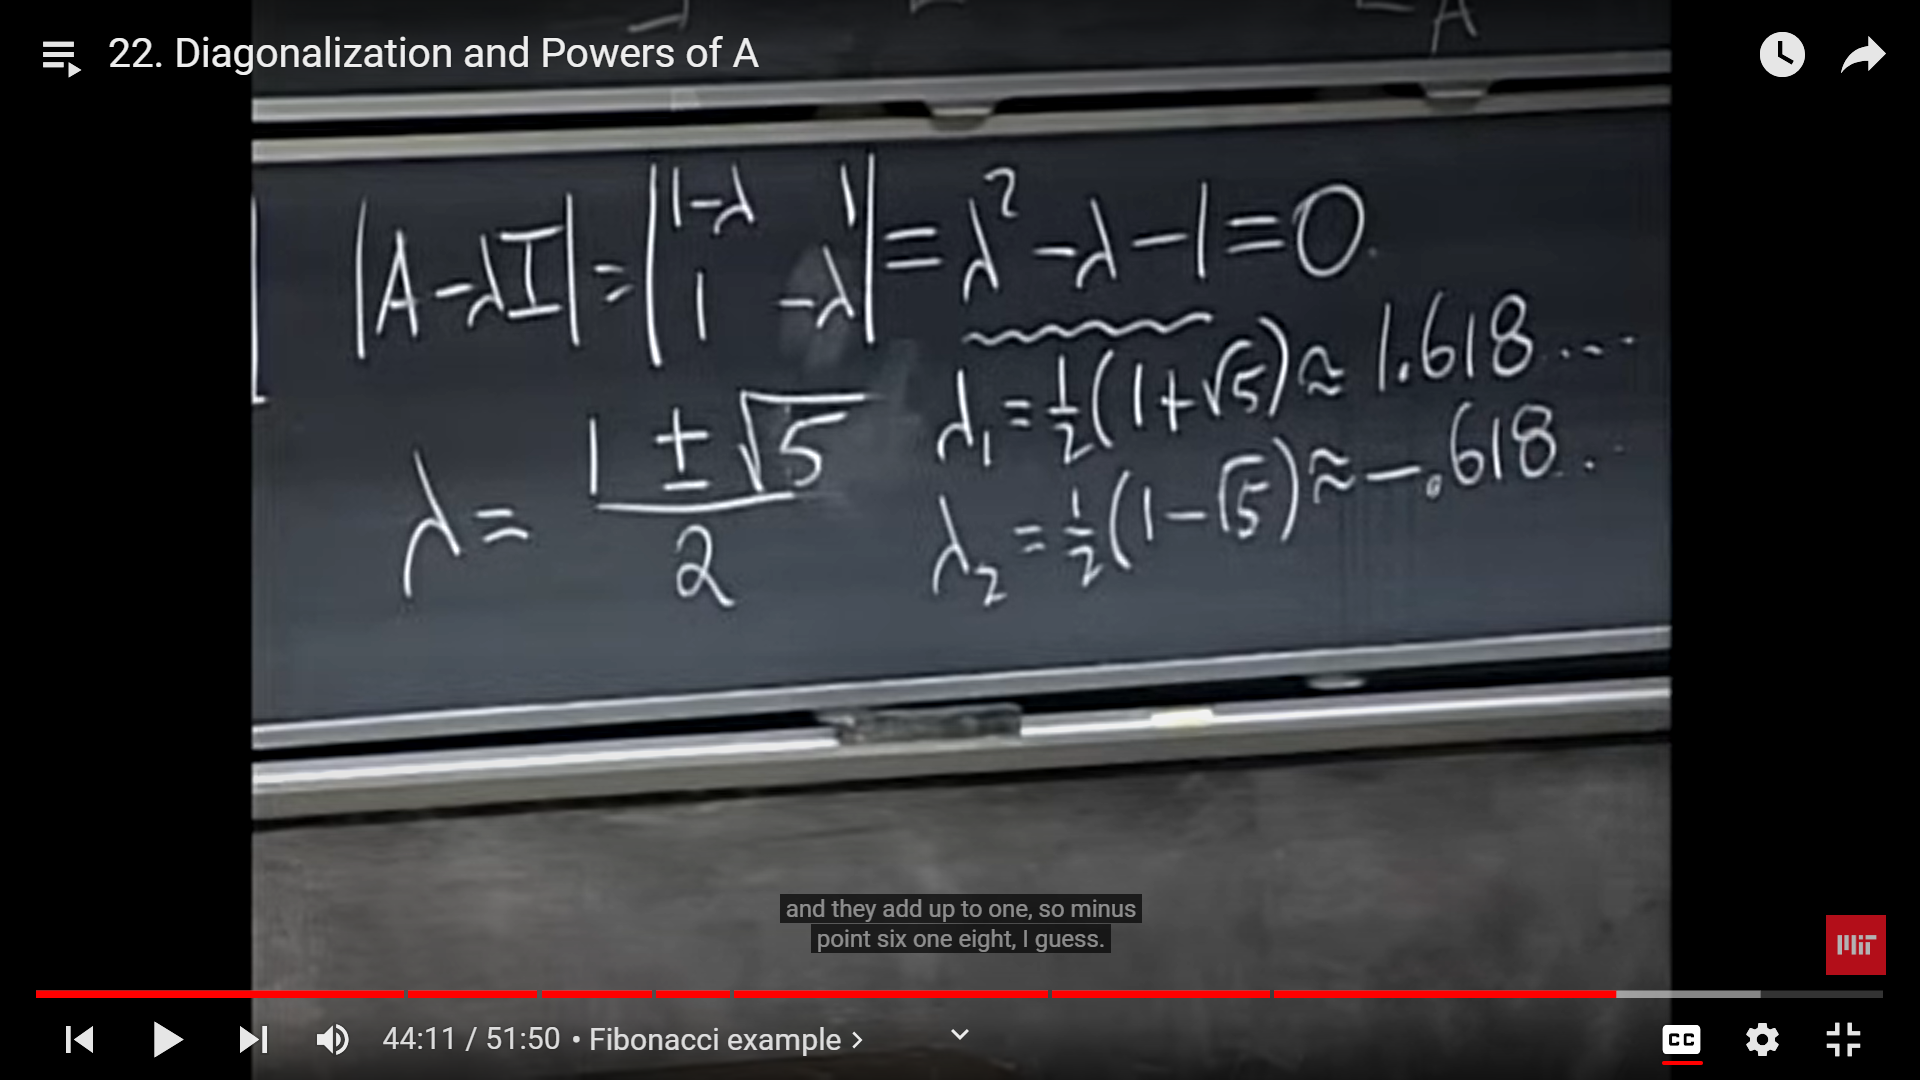 22. Diagonalization and Powers of A
A
|A-λI| = |1-λ 1| = λ² - λ - 1 = 0.
|1 -λ|
λ₁ = ½(1+√5) ≈ 1.618...
λ = 1 ± √5
2
λ₂ = ½(1-√5) ≈ -.618..
and they add up to one, so minus
point six one eight, I guess.
MIT
44:11 / 51:50 • Fibonacci example >
CC